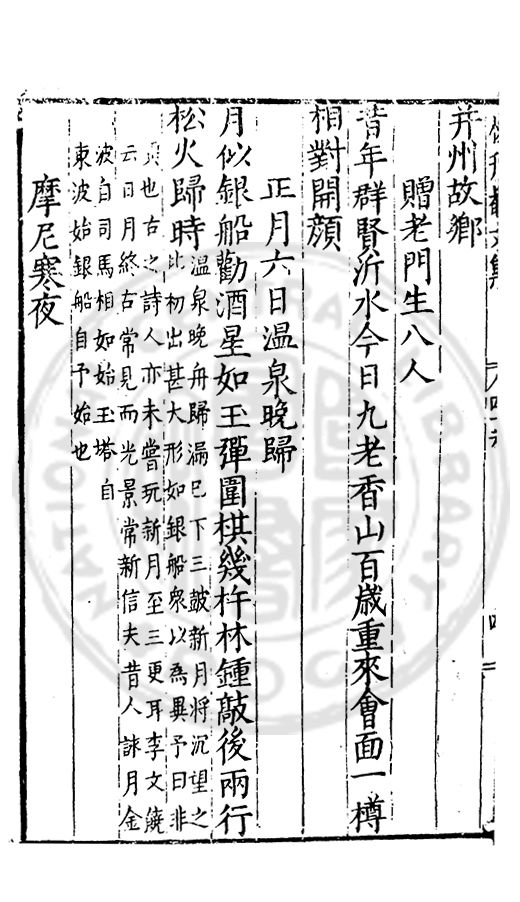 并州故鄉
贈老門生八人
昔年群賢沂水今日九老香山百歲重來會面一樽
相對開顔
正月六日溫泉晚歸
月似銀船勸酒星如玉彈圍棋幾杵林鍾敲後兩行
松火歸時
溫泉晚舟歸漏巳下三鼓新月將沉望之
比初出甚大形如銀船衆以爲異予曰非
異也古之詩人亦未嘗玩新月至三更耳李文饒
云日月終古常見而光景常新信夫昔人詠月金
波自司馬相如始玉塔自
東坡始銀船自予始也
摩尼寒夜